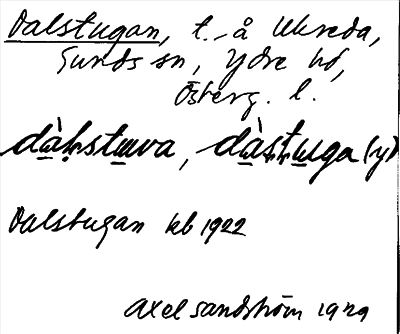 Dalstugan, t. å Ukreda,
Sunds sn, Ydre hd,
Österg. l.
dàḷstuva, dàṣṭuga (y)
Dalstugan kb 1922
Axel Sandström 1929